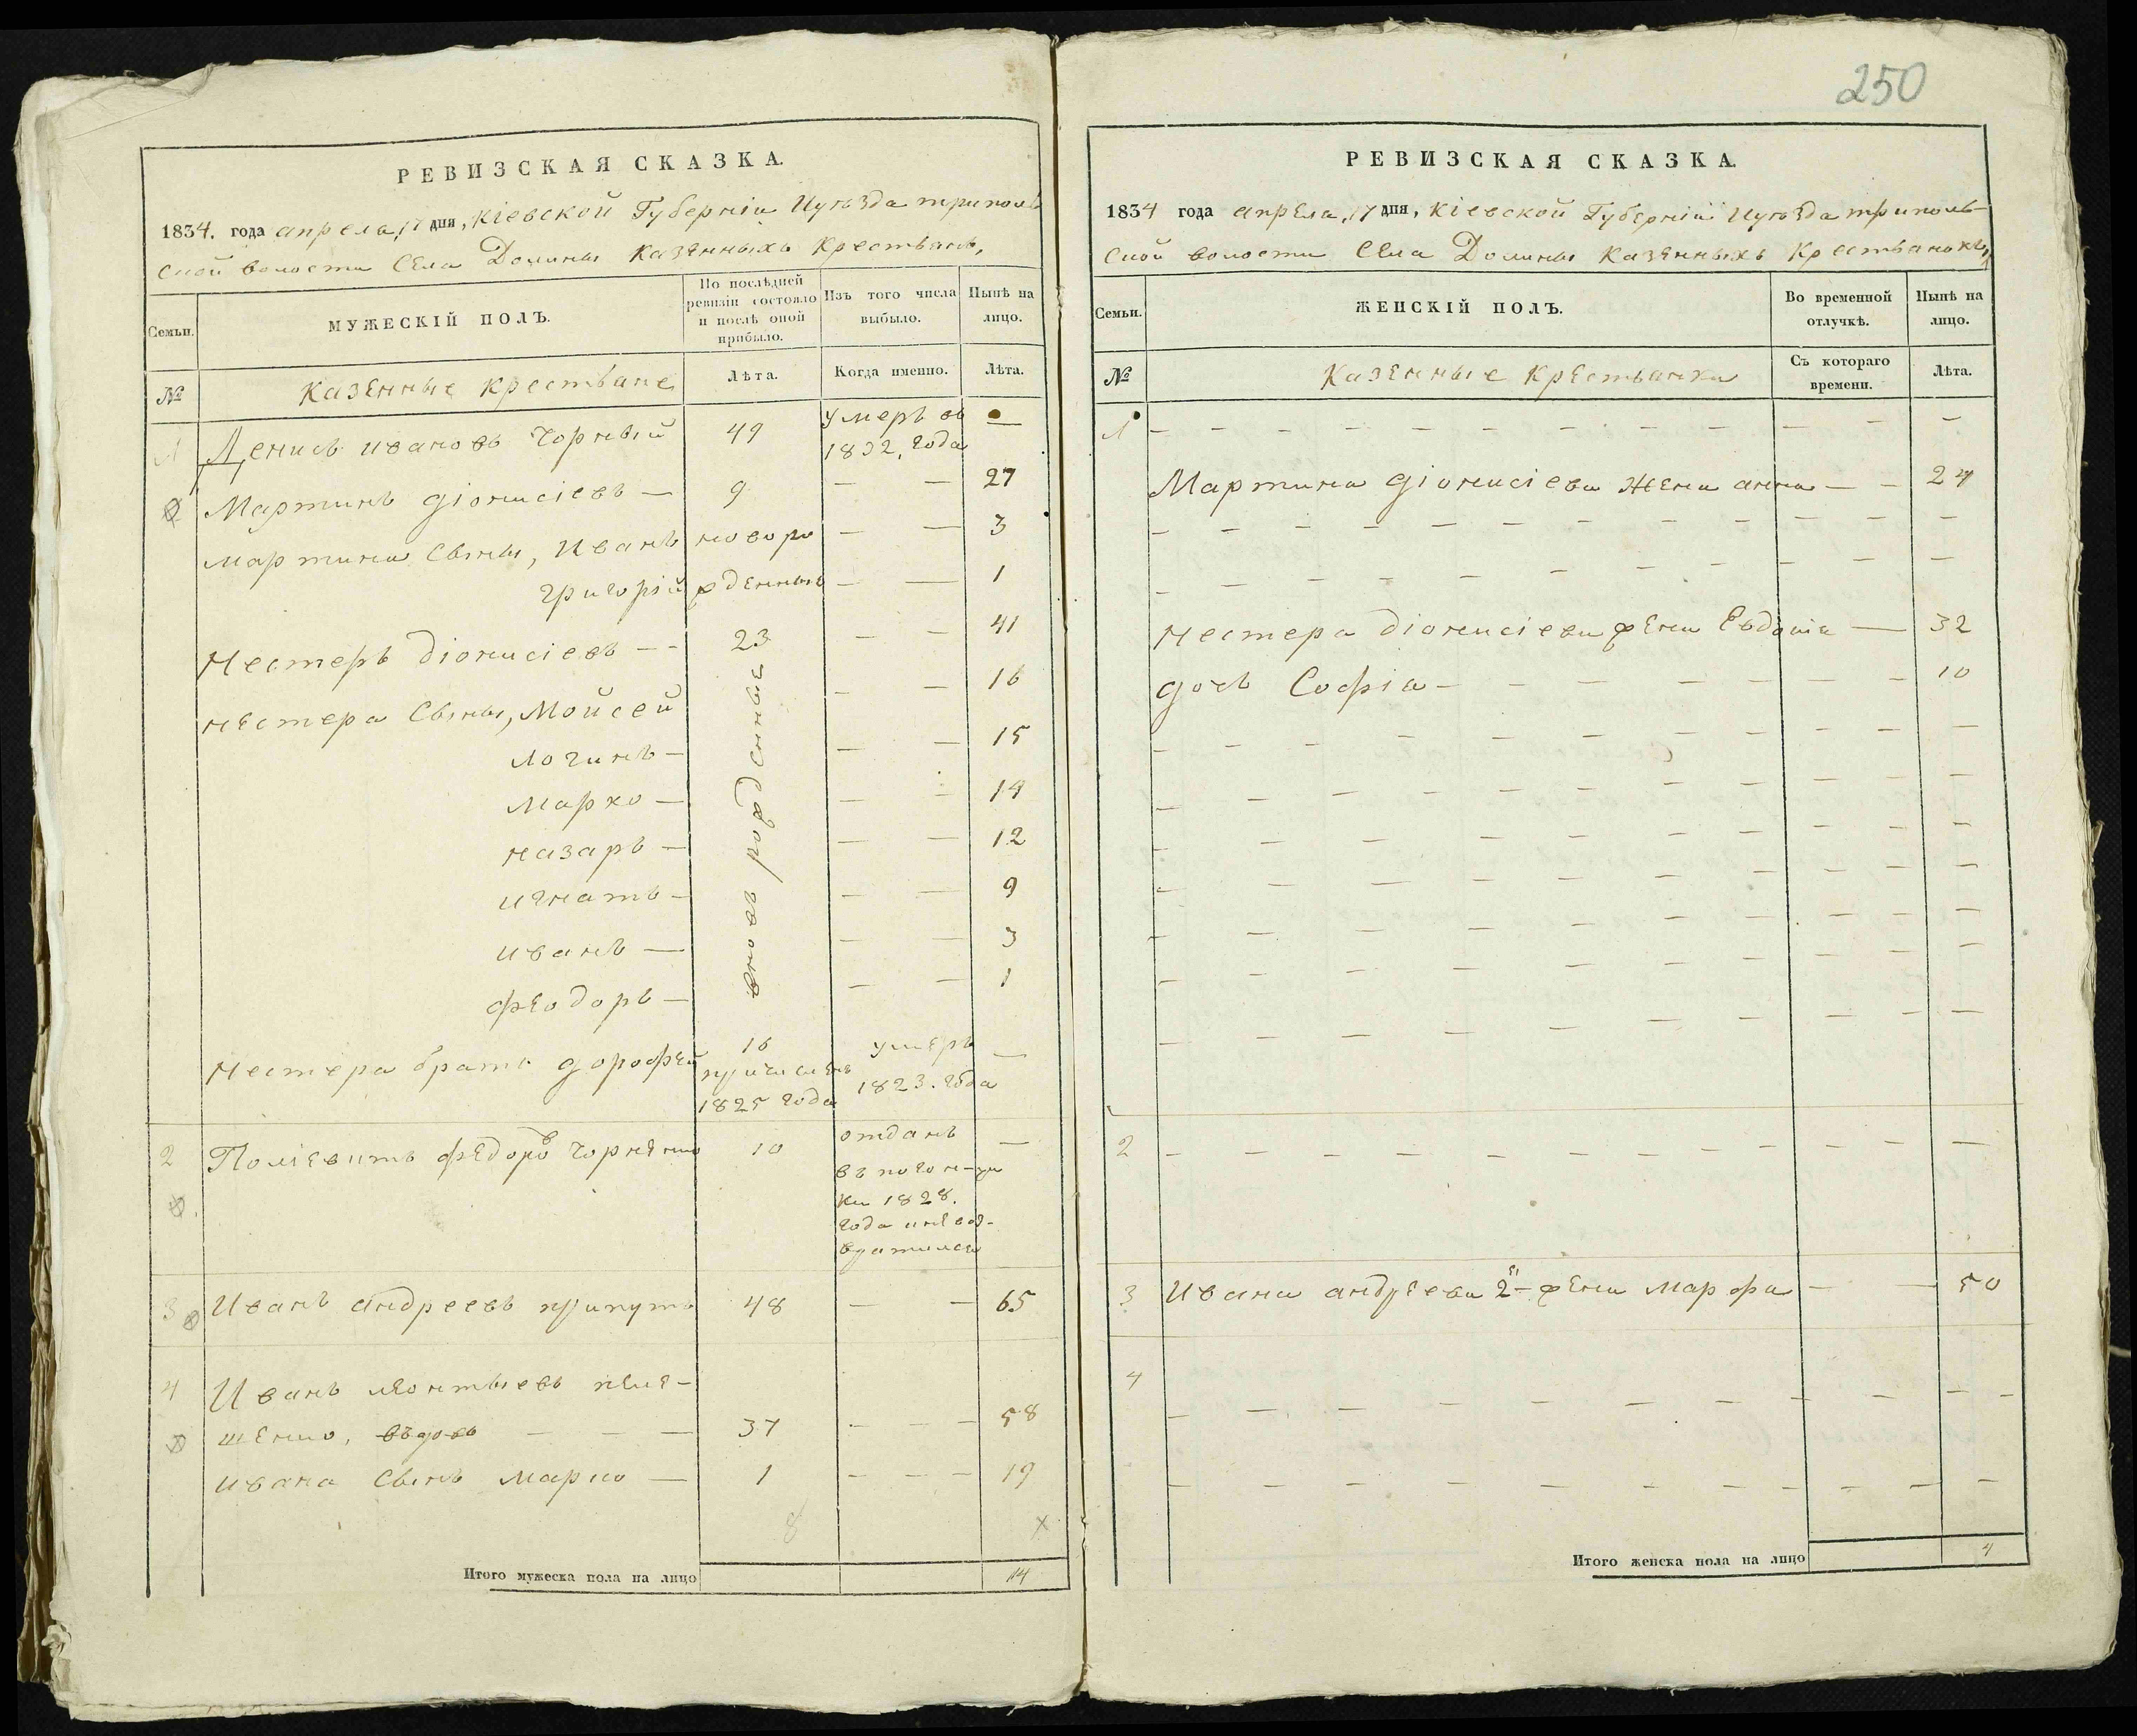 РЕВИЗСКАЯ СКАЗКА.
1834. года апреля, 17 дня, Кіевской Губерніи Иуѣзда триполь
ской волости Села Долины Казенныхъ Крестьянъ,
Семьи.
МУЖЕСКІЙ ПОЛЪ.
По послѣдней ревизіи состояло и послѣ оной прибыло.
Изъ того числа выбыло.
Нынѣ на лицо.
№
Казенные Крестьяне
Лѣта.
Когда именно.
Лѣта.
1 Денисъ ивановъ Чорный 49 умеръ въ 1832, года —
Мартинъ Діонисіевъ — 9 — — 27
Мартина Сыны, Иванъ новоро — — 3
григорій жденные — — 1
Нестеръ Діонисіевъ — — 23 — — 41
Нестера Сыны, Мойсей — — 16
логинъ — — — 15
Марко — — — 14
назаръ — — — 12
игнатъ — — — 9
иванъ — — — 3
феодоръ — — — 1
вновь рожденные
Нестера братъ Дорофей 16 причисленъ 1825 года умеръ 1823. года —
2 Поліевктъ федоровъ Чорненко 10 отданъ —
ки 1828.
года и не воз-
вратился
3 Иванъ андреевъ припутъ 48 — — 65
4 Иванъ леонтьевъ пеле-
шенко, — — — 37 — — — 58
ивана Сынъ Марко — 1 — — — 19
8 х
Итого мужеска пола на лицо 14
250
РЕВИЗСКАЯ СКАЗКА.
1834 года апреля, 17 дня, Кіевской Губерніи Иуѣзда триполь-
ской волости Села Долины Казенныхъ Крестьянокъ,
Семьи.
ЖЕНСКІЙ ПОЛЪ.
Во временной отлучкѣ.
Нынѣ на лицо.
№
Казенные Крестьянки
Съ котораго времени.
Лѣта.
1
Мартина Діонисіева Жена анна — — 24
Нестера Діонисіева жена Евдокія — 32
дочь Софія — 10
2
3 Ивана андреева 2я жена Марфа — — 50
4
Итого женска пола на лицо 4